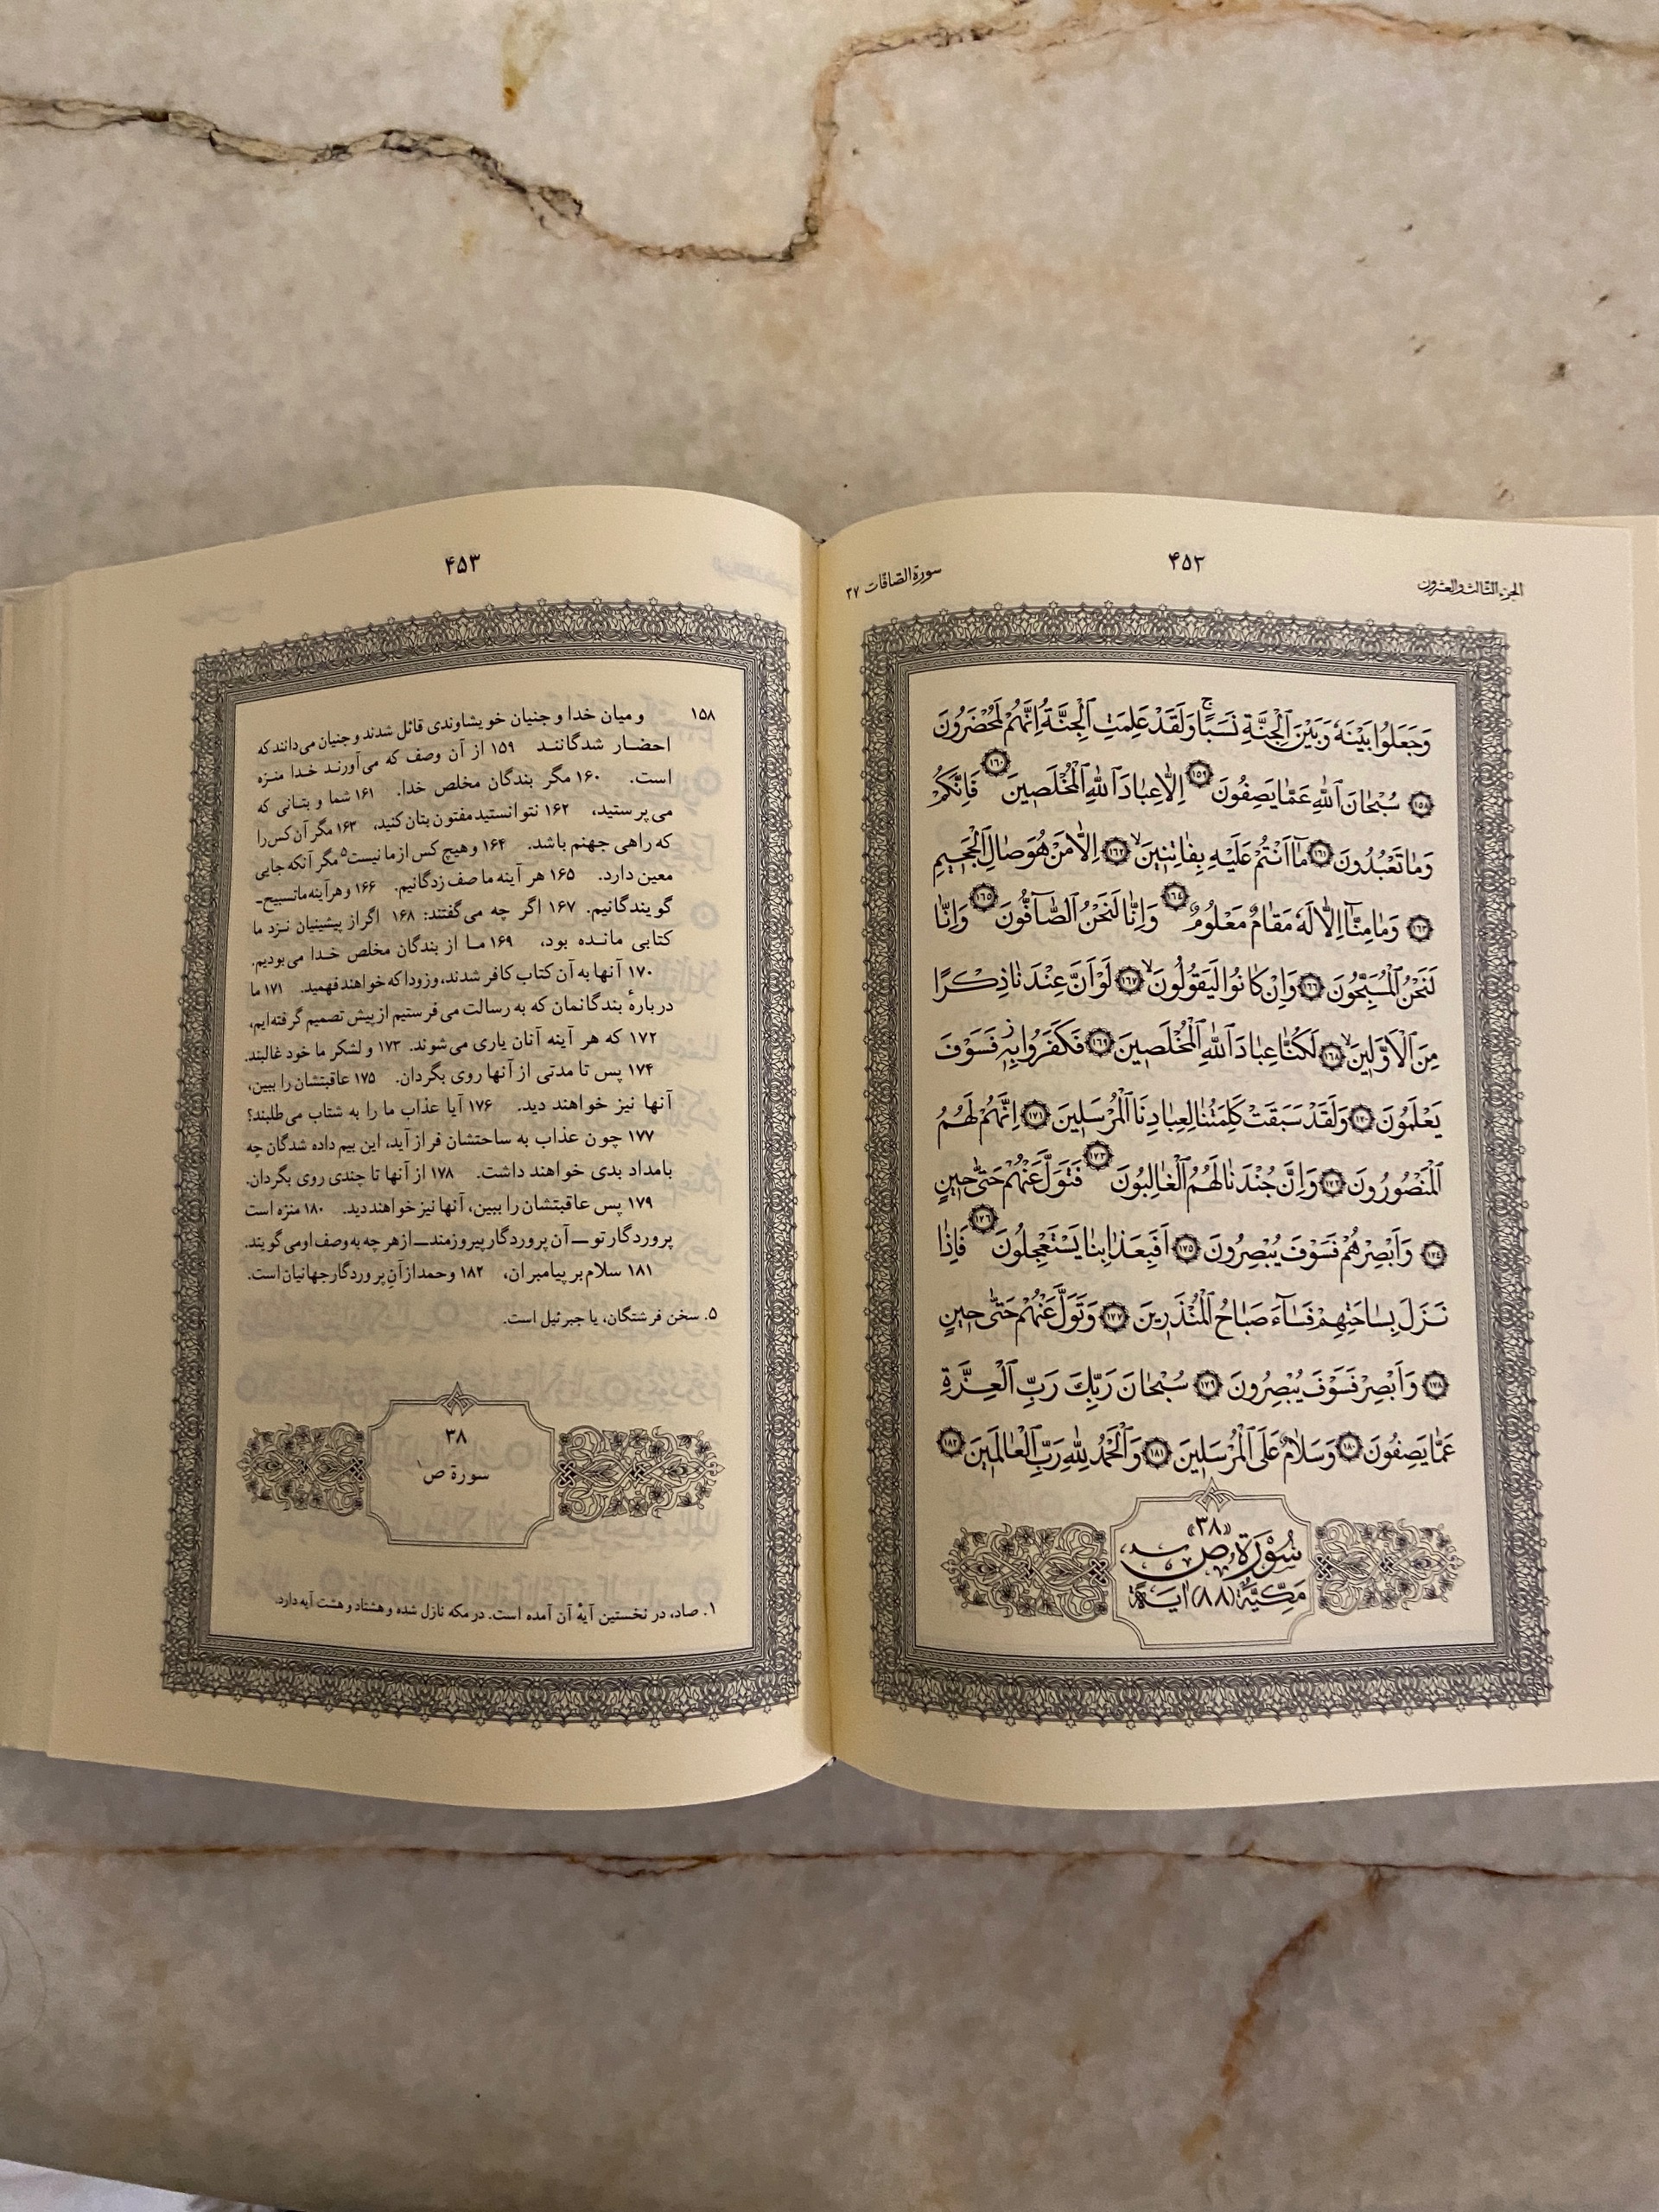 الجزء الثالث والعشرون
۴۵۳
سورة الصّافّات ۳۷
وَجَعَلُوا بَيْنَهُ وَبَيْنَ الْجِنَّةِ نَسَبًا ۚ وَلَقَدْ عَلِمَتِ الْجِنَّةُ اِنَّهُمْ لَمُحْضَرُونَ
﴿١٥٨﴾ سُبْحَانَ اللّٰهِ عَمَّا يَصِفُونَ ﴿١٥٩﴾ اِلَّا عِبَادَ اللّٰهِ الْمُخْلَصِينَ ﴿١٦٠﴾ فَاِنَّكُمْ
وَمَا تَعْبُدُونَ ﴿١٦١﴾ مَا اَنْتُمْ عَلَيْهِ بِفَاتِنِينَ ﴿١٦٢﴾ اِلَّا مَنْ هُوَ صَالِ الْجَحِيمِ
﴿١٦٣﴾ وَمَا مِنَّا اِلَّا لَهُ مَقَامٌ مَعْلُومٌ ﴿١٦٤﴾ وَاِنَّا لَنَحْنُ الصَّافُّونَ ﴿١٦٥﴾ وَاِنَّا
لَنَحْنُ الْمُسَبِّحُونَ ﴿١٦٦﴾ وَاِنْ كَانُوا لَيَقُولُونَ ﴿١٦٧﴾ لَوْ اَنَّ عِنْدَنَا ذِكْرًا
مِنَ الْاَوَّلِينَ ﴿١٦٨﴾ لَكُنَّا عِبَادَ اللّٰهِ الْمُخْلَصِينَ ﴿١٦٩﴾ فَكَفَرُوا بِهِ فَسَوْفَ
يَعْلَمُونَ ﴿١٧٠﴾ وَلَقَدْ سَبَقَتْ كَلِمَتُنَا لِعِبَادِنَا الْمُرْسَلِينَ ﴿١٧١﴾ اِنَّهُمْ لَهُمُ
الْمَنْصُورُونَ ﴿١٧٢﴾ وَاِنَّ جُنْدَنَا لَهُمُ الْغَالِبُونَ ﴿١٧٣﴾ فَتَوَلَّ عَنْهُمْ حَتّٰى حِينٍ
﴿١٧٤﴾ وَاَبْصِرْهُمْ فَسَوْفَ يُبْصِرُونَ ﴿١٧٥﴾ اَفَبِعَذَابِنَا يَسْتَعْجِلُونَ ﴿١٧٦﴾ فَاِذَا
نَزَلَ بِسَاحَتِهِمْ فَسَاءَ صَبَاحُ الْمُنْذَرِينَ ﴿١٧٧﴾ وَتَوَلَّ عَنْهُمْ حَتّٰى حِينٍ
﴿١٧٨﴾ وَاَبْصِرْ فَسَوْفَ يُبْصِرُونَ ﴿١٧٩﴾ سُبْحَانَ رَبِّكَ رَبِّ الْعِزَّةِ
عَمَّا يَصِفُونَ ﴿١٨٠﴾ وَسَلَامٌ عَلَى الْمُرْسَلِينَ ﴿١٨١﴾ وَالْحَمْدُ لِلّٰهِ رَبِّ الْعَالَمِينَ ﴿١٨٢﴾
«٣٨»
سُورَةُ ص
مَكِّيَّةٌ (٨٨) اٰيَةً
۴۵۳
۱۵۸ و میان خدا و جنیان خویشاوندی قائل شدند و جنیان می‌دانند که
احضار شدگانند ۱۵۹ از آن وصف که می‌آورند خدا منزه
است. ۱۶۰ مگر بندگان مخلص خدا. ۱۶۱ شما و بتانی که
می‌پرستید، ۱۶۲ نتوانستید مفتون بتان کنید، ۱۶۳ مگر آن کس را
که راهی جهنم باشد. ۱۶۴ و هیچ کس از ما نیست۵ مگر آنکه جایی
معین دارد. ۱۶۵ هر آینه ما صف زدگانیم. ۱۶۶ و هر آینه ما تسبیح‌ـ
گویندگانیم. ۱۶۷ اگر چه می‌گفتند: ۱۶۸ اگر از پیشینیان نزد ما
کتابی مانده بود، ۱۶۹ ما از بندگان مخلص خدا می‌بودیم.
۱۷۰ آنها به آن کتاب کافر شدند، و زودا که خواهند فهمید. ۱۷۱ ما
دربارهٔ بندگانمان که به رسالت می‌فرستیم از پیش تصمیم گرفته‌ایم،
۱۷۲ که هر آینه آنان یاری می‌شوند. ۱۷۳ و لشکر ما خود غالبند.
۱۷۴ پس تا مدتی از آنها روی بگردان. ۱۷۵ عاقبتشان را ببین،
آنها نیز خواهند دید. ۱۷۶ آیا عذاب ما را به شتاب می‌طلبند؟
۱۷۷ چون عذاب به ساحتشان فراز آید، این بیم داده شدگان چه
بامداد بدی خواهند داشت. ۱۷۸ از آنها تا چندی روی بگردان.
۱۷۹ پس عاقبتشان را ببین، آنها نیز خواهند دید. ۱۸۰ منزه است
پروردگار تو — آن پروردگار پیروزمند — از هر چه به وصف او می‌گویند.
۱۸۱ سلام بر پیامبران، ۱۸۲ و حمد از آنِ پروردگار جهانیان است.
۵. سخن فرشتگان، یا جبرئیل است.
۳۸
سورة ص۱
۱. صاد، در نخستین آیهٔ آن آمده است. در مکه نازل شده و هشتاد و هشت آیه دارد.